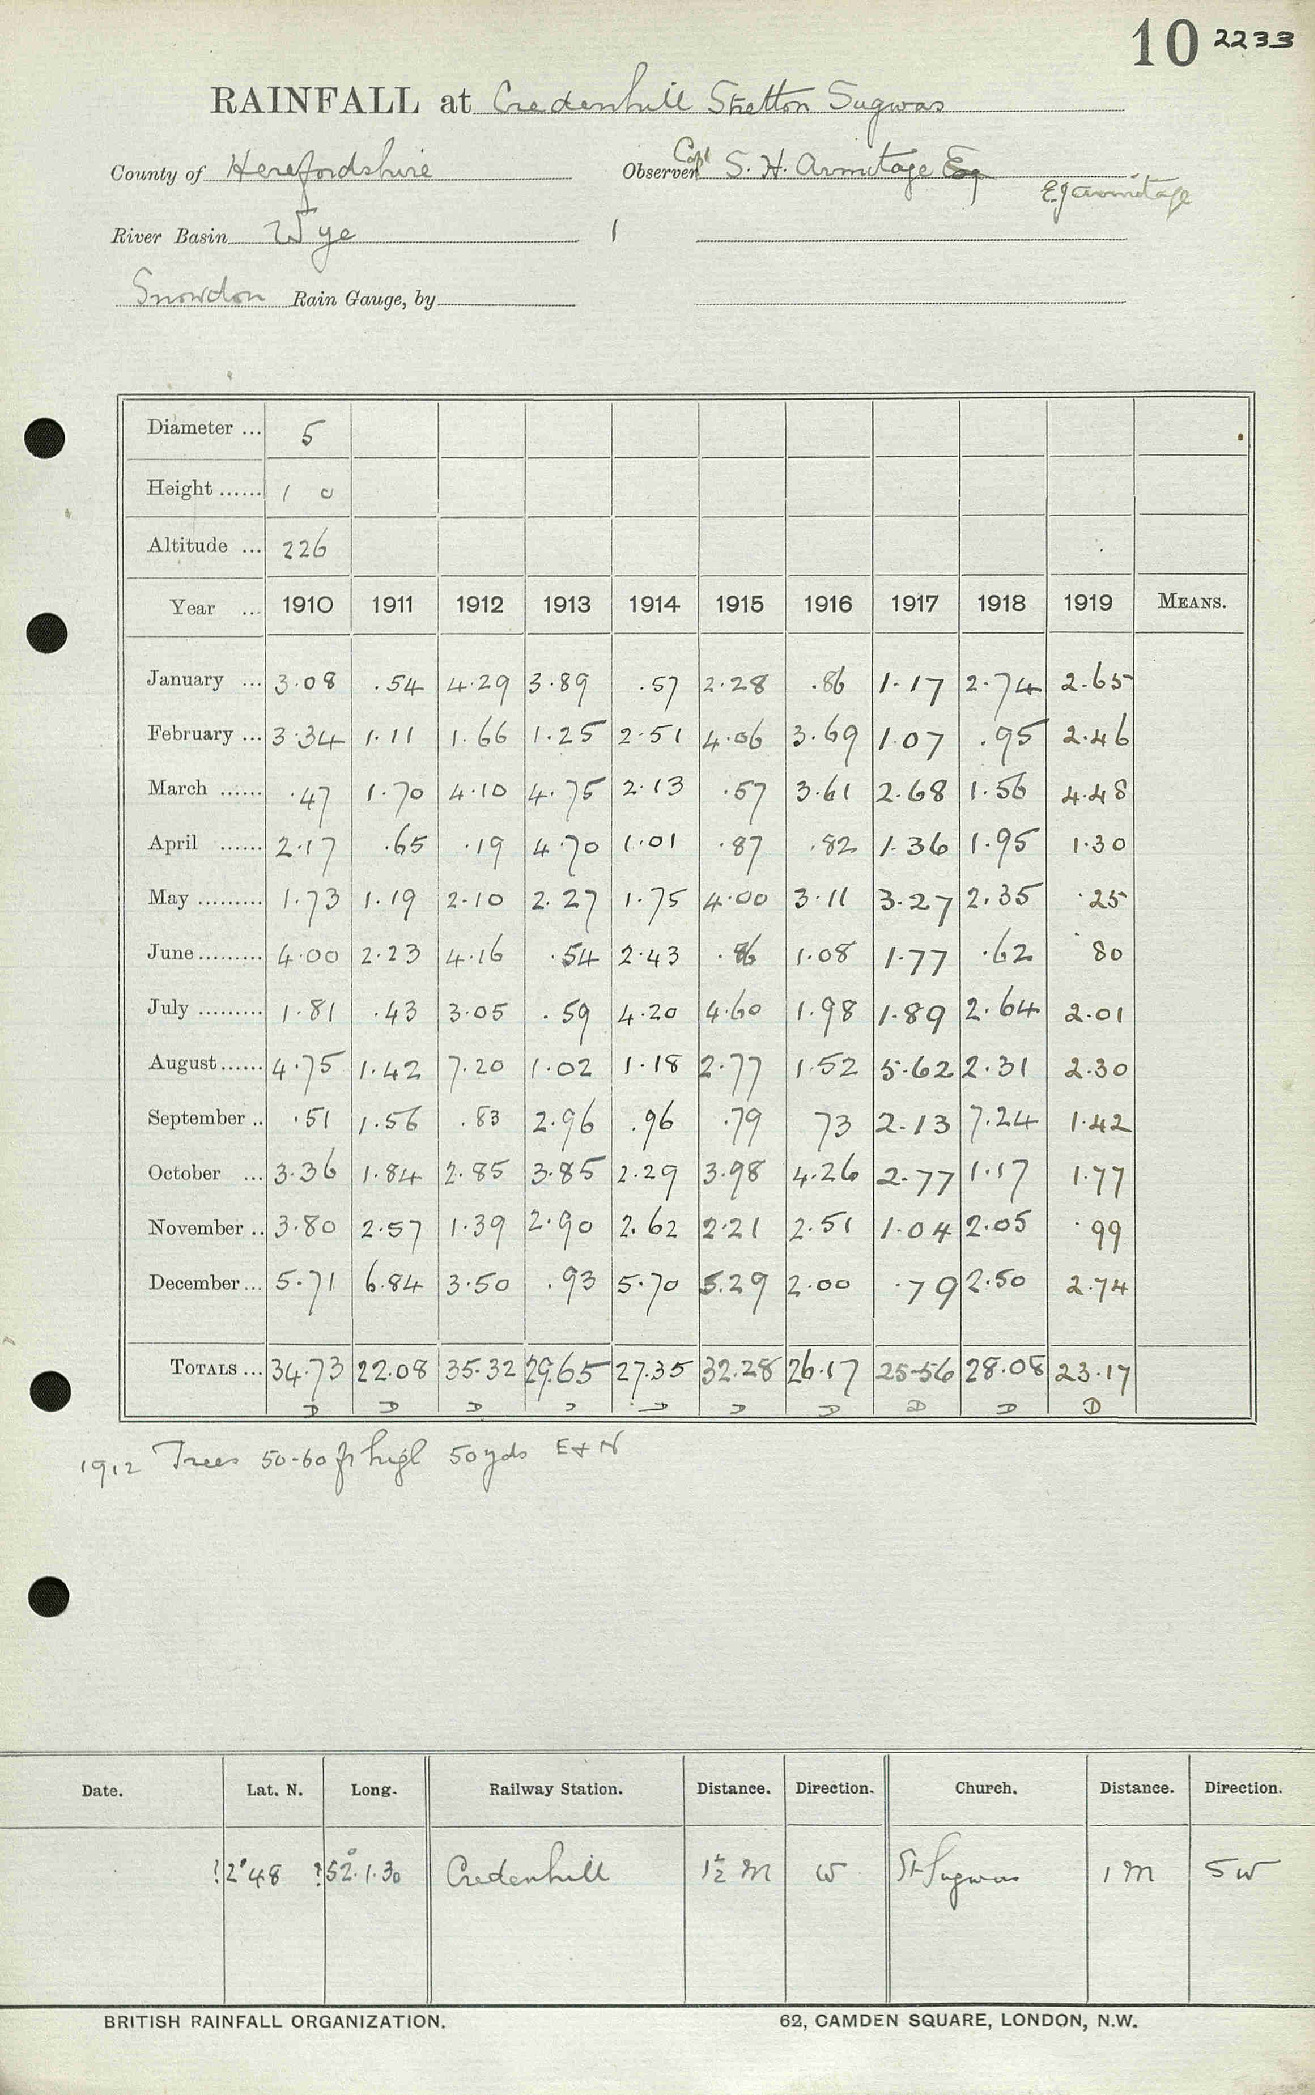 10 2233
RAINFALL at Credenhill Stretton Sugwas
County of Herefordshire Observer Capt S. H. Armitage Esq
E J Armitage
River Basin Wye 1
Snowdon Rain Gauge, by
Diameter ... 5
Height ...... 1 0
Altitude ... 226
Year ... 1910 1911 1912 1913 1914 1915 1916 1917 1918 1919 MEANS.
January ... 3.08 .54 4.29 3.89 .57 2.28 .86 1.17 2.74 2.65
February ... 3.34 1.11 1.66 1.25 2.51 4.06 3.69 1.07 .95 2.46
March ...... .47 1.70 4.10 4.75 2.13 .57 3.61 2.68 1.56 4.48
April ...... 2.17 .65 .19 4.70 1.01 .87 .82 1.36 1.95 1.30
May ......... 1.73 1.19 2.10 2.27 1.75 4.00 3.11 3.27 2.35 .25
June ......... 4.00 2.23 4.16 .54 2.43 .86 1.08 1.77 .62 .80
July ......... 1.81 .43 3.05 .59 4.20 4.60 1.98 1.89 2.64 2.01
August ...... 4.75 1.42 7.20 1.02 1.18 2.77 1.52 5.62 2.31 2.30
September .. .51 1.56 .83 2.96 .96 .79 73 2.13 7.24 1.42
October ... 3.36 1.84 2.85 3.85 2.29 3.98 4.26 2.77 1.17 1.77
November .. 3.80 2.57 1.39 2.90 2.62 2.21 2.51 1.04 2.05 .99
December ... 5.71 6.84 3.50 .93 5.70 5.29 2.00 .79 2.50 2.74
TOTALS ... 34.73 22.08 35.32 29.65 27.35 32.28 26.17 25.56 28.08 23.17
D D D D D D D D D D
1912 Trees 50-60 ft high 50 yds E & N
Date. Lat. N. Long. Railway Station. Distance. Direction. Church. Distance. Direction.
? 2°48 ? 52°.1.30 Credenhill 1½ M W St Sugwas 1 M SW
BRITISH RAINFALL ORGANIZATION. 62, CAMDEN SQUARE, LONDON, N.W.